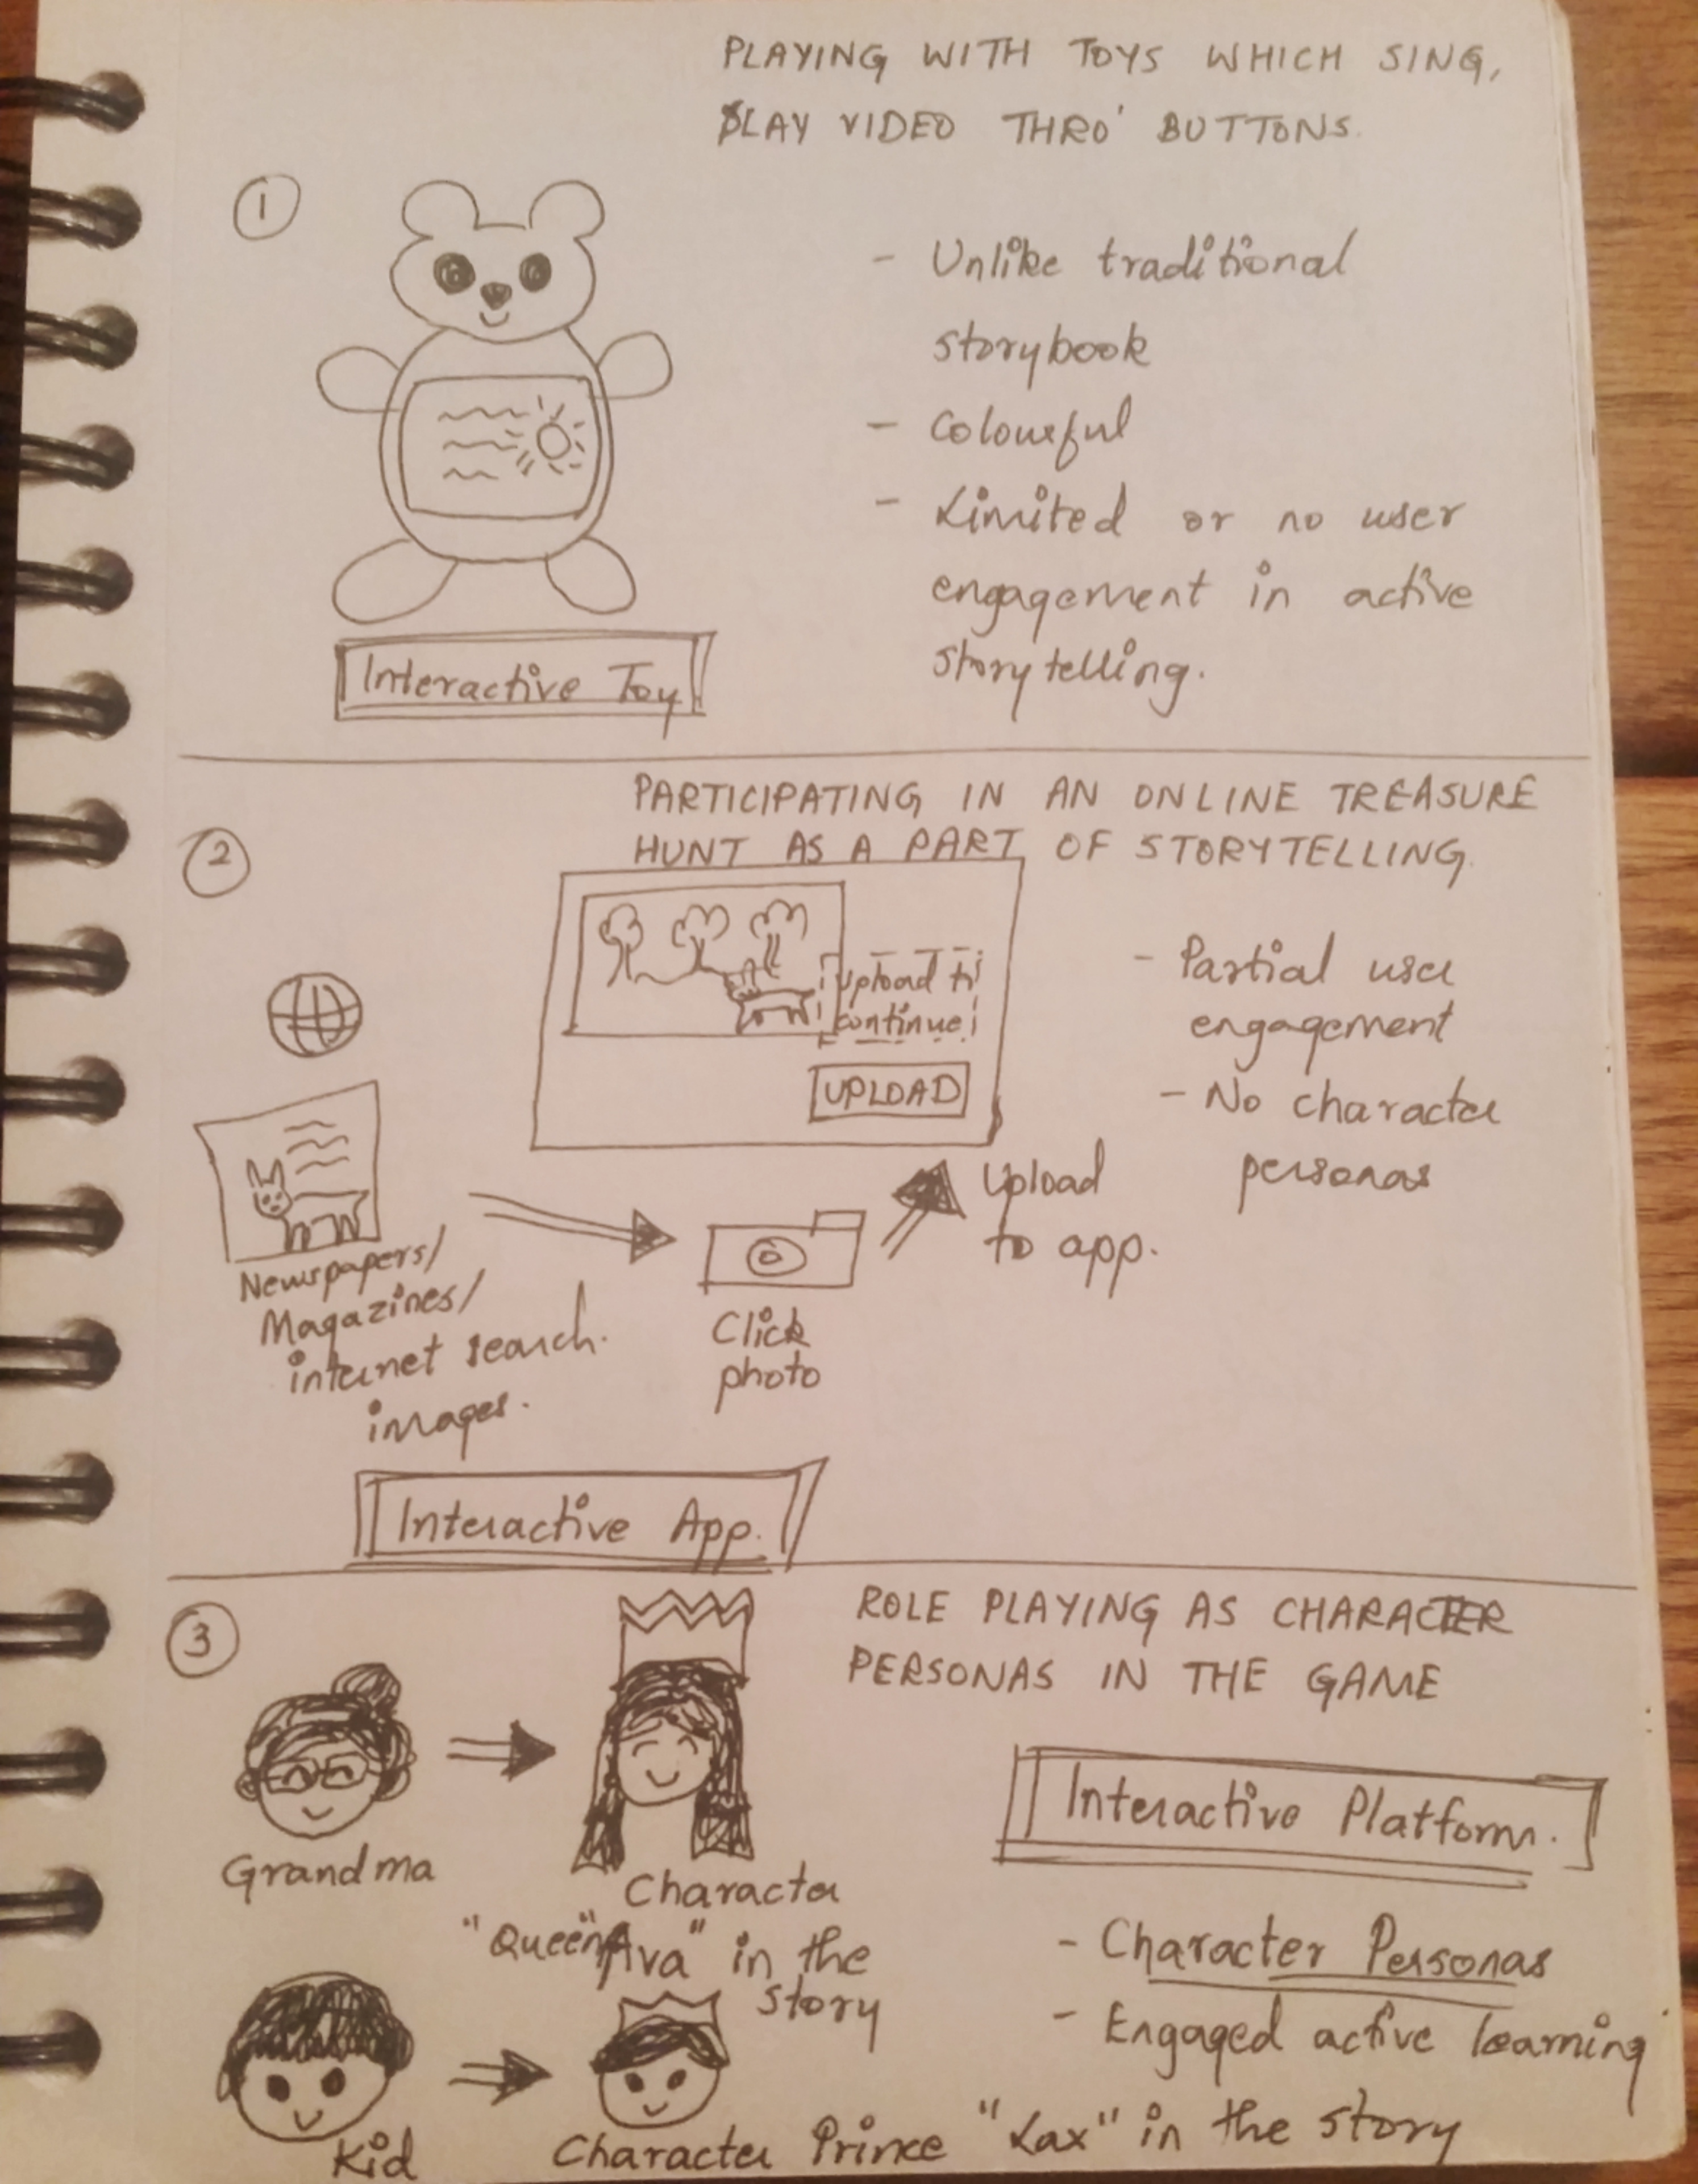 PLAYING WITH TOYS WHICH SING,
PLAY VIDEO THRO' BUTTONS.
1
- Unlike traditional
storybook
- Colourful
- Limited or no user
engagement in active
storytelling.
Interactive Toy
PARTICIPATING IN AN ONLINE TREASURE
HUNT AS A PART OF STORYTELLING.
2
upload to
continue
UPLOAD
- Partial user
engagement
- No character
personas
Upload
to app.
Newspapers/
Magazines/
internet search.
images.
Click
photo
Interactive App.
3
ROLE PLAYING AS CHARACTER
PERSONAS IN THE GAME
Interactive Platform.
Grandma
Character
"Queen" Ava" in the
story
- Character Personas
- Engaged active learning
Kid
Character Prince "Lax" in the story